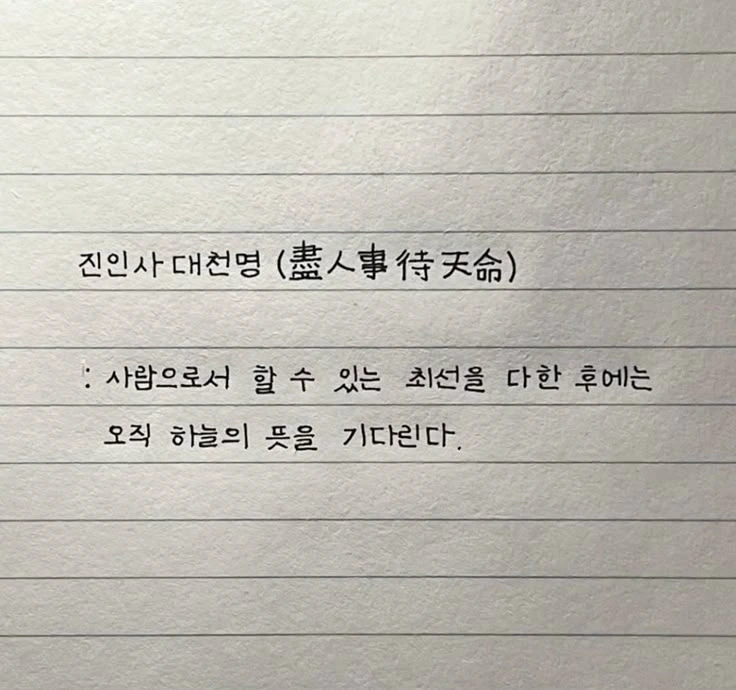 진인사대천명 (盡人事待天命)
: 사람으로서 할 수 있는 최선을 다한 후에는
오직 하늘의 뜻을 기다린다.